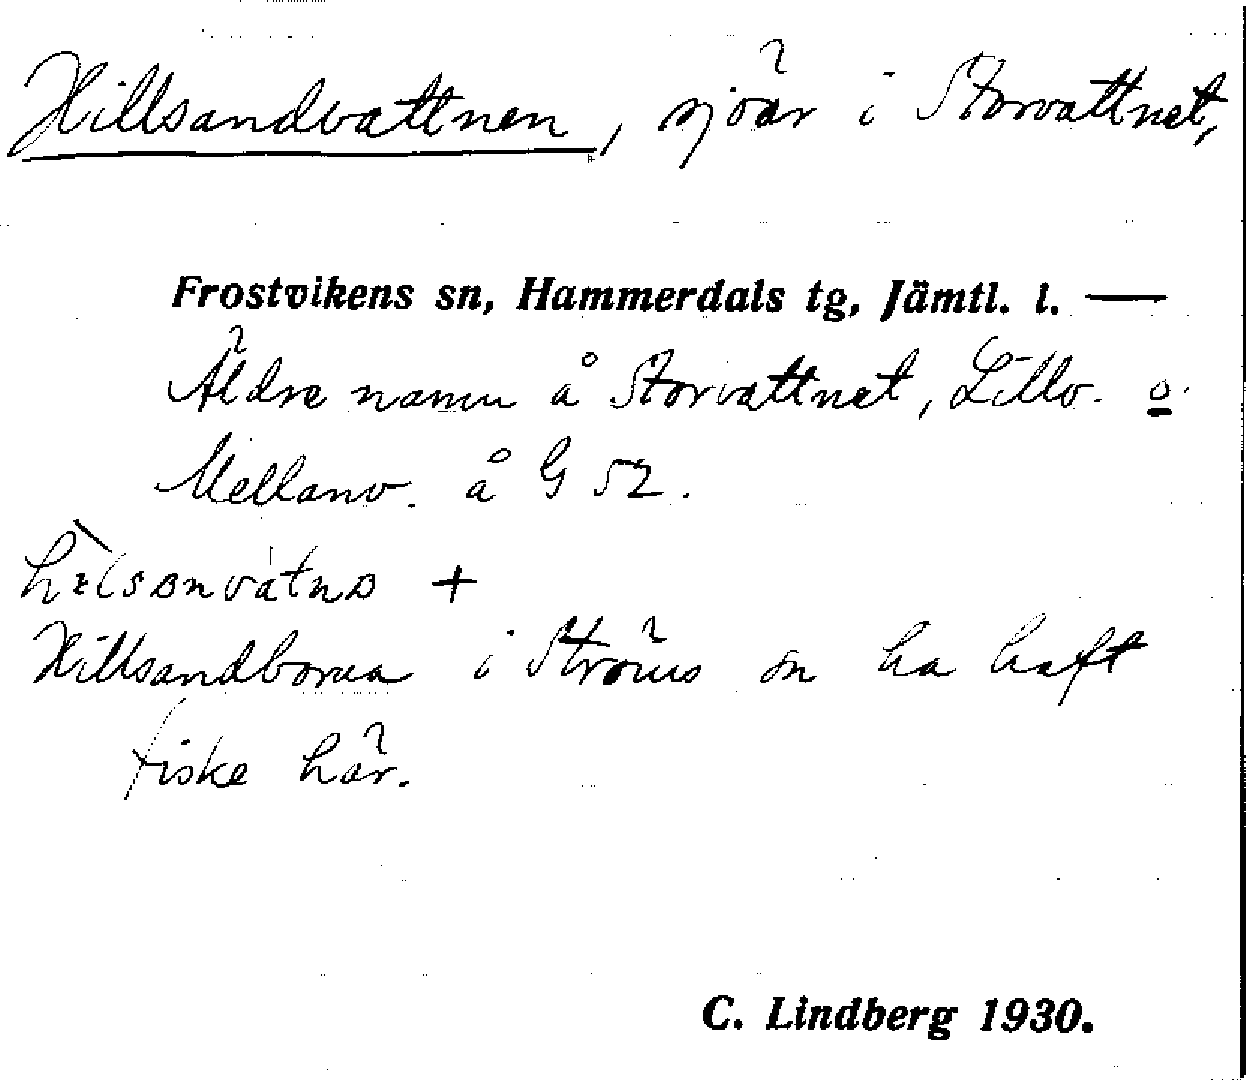 Hillsandvattnen, sjöar i Storvattnet,
Frostvikens sn, Hammerdals tg, Jämtl. l. —
Äldre namn å Storvattnet, Lillv. o
Mellanv. å G 52.
+
Hillsandborna i Ströms sn ha haft
fiske här.
C. Lindberg 1930.